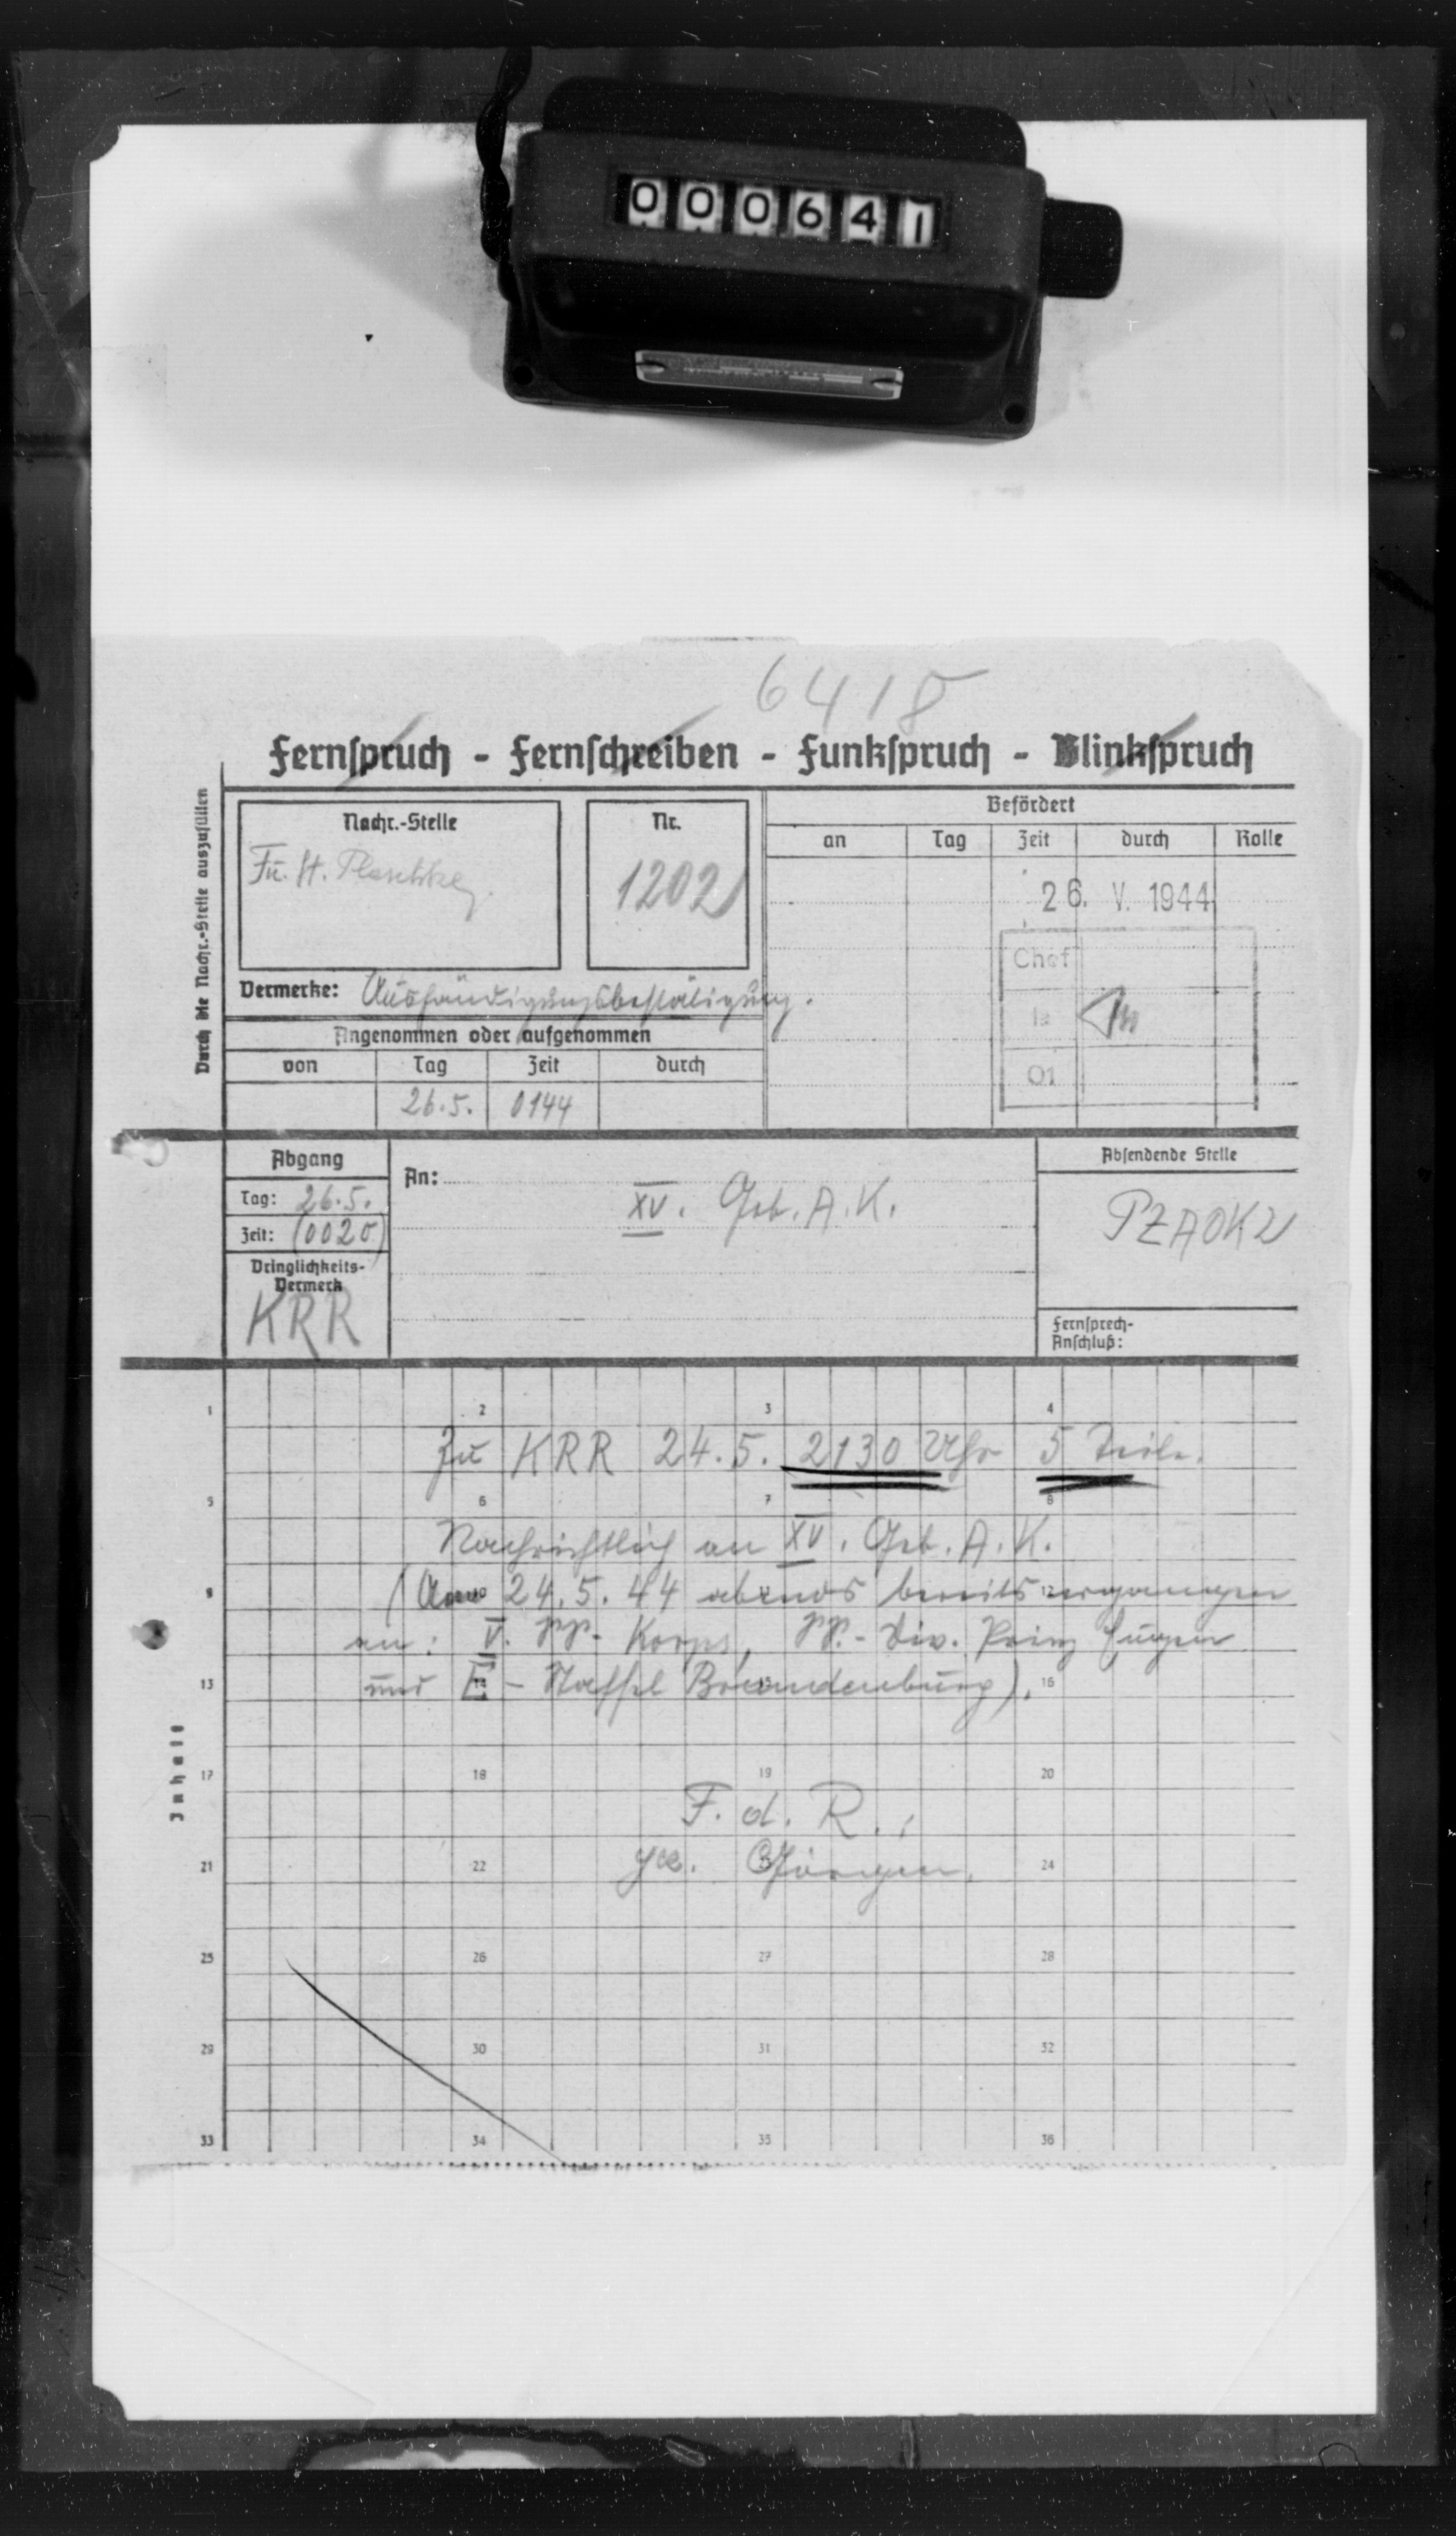 000641
6418
Fernspruch - Fernschreiben - Funkspruch - Blinkspruch
Durch die Nachr.-Stelle auszufüllen
Nachr.-Stelle
Fu. St.
Nr.
1202
Befördert
an Tag Zeit durch Rolle
26. V. 1944
Chef
Ia
O1
Vermerke: Aushändigungsbestätigung.
Angenommen oder aufgenommen
von Tag Zeit durch
26.5. 0144
Abgang
Tag: 26.5.
Zeit: (0020)
Dringlichkeits-
Vermerk
KRR
An:
XV. Geb. A. K.
Absendende Stelle
PZAOK2
Fernsprech-
Anschluß:
Inhalt
1 2 3 4
Zu KRR 24.5. 2130 Uhr 5 Teile.
5 6 7 8
Nachrichtlich an XV. Geb. A. K.
9 12
(Am 24.5.44 abends bereits ergangen
an: V. SS.- Korps, SS.- Div. Prinz Eugen
13 16
und E - Staffel Brandenburg).
17 18 19 20
F. d. R.:
21 22 24
gez.
25 26 27 28
29 30 31 32
33 34 35 36